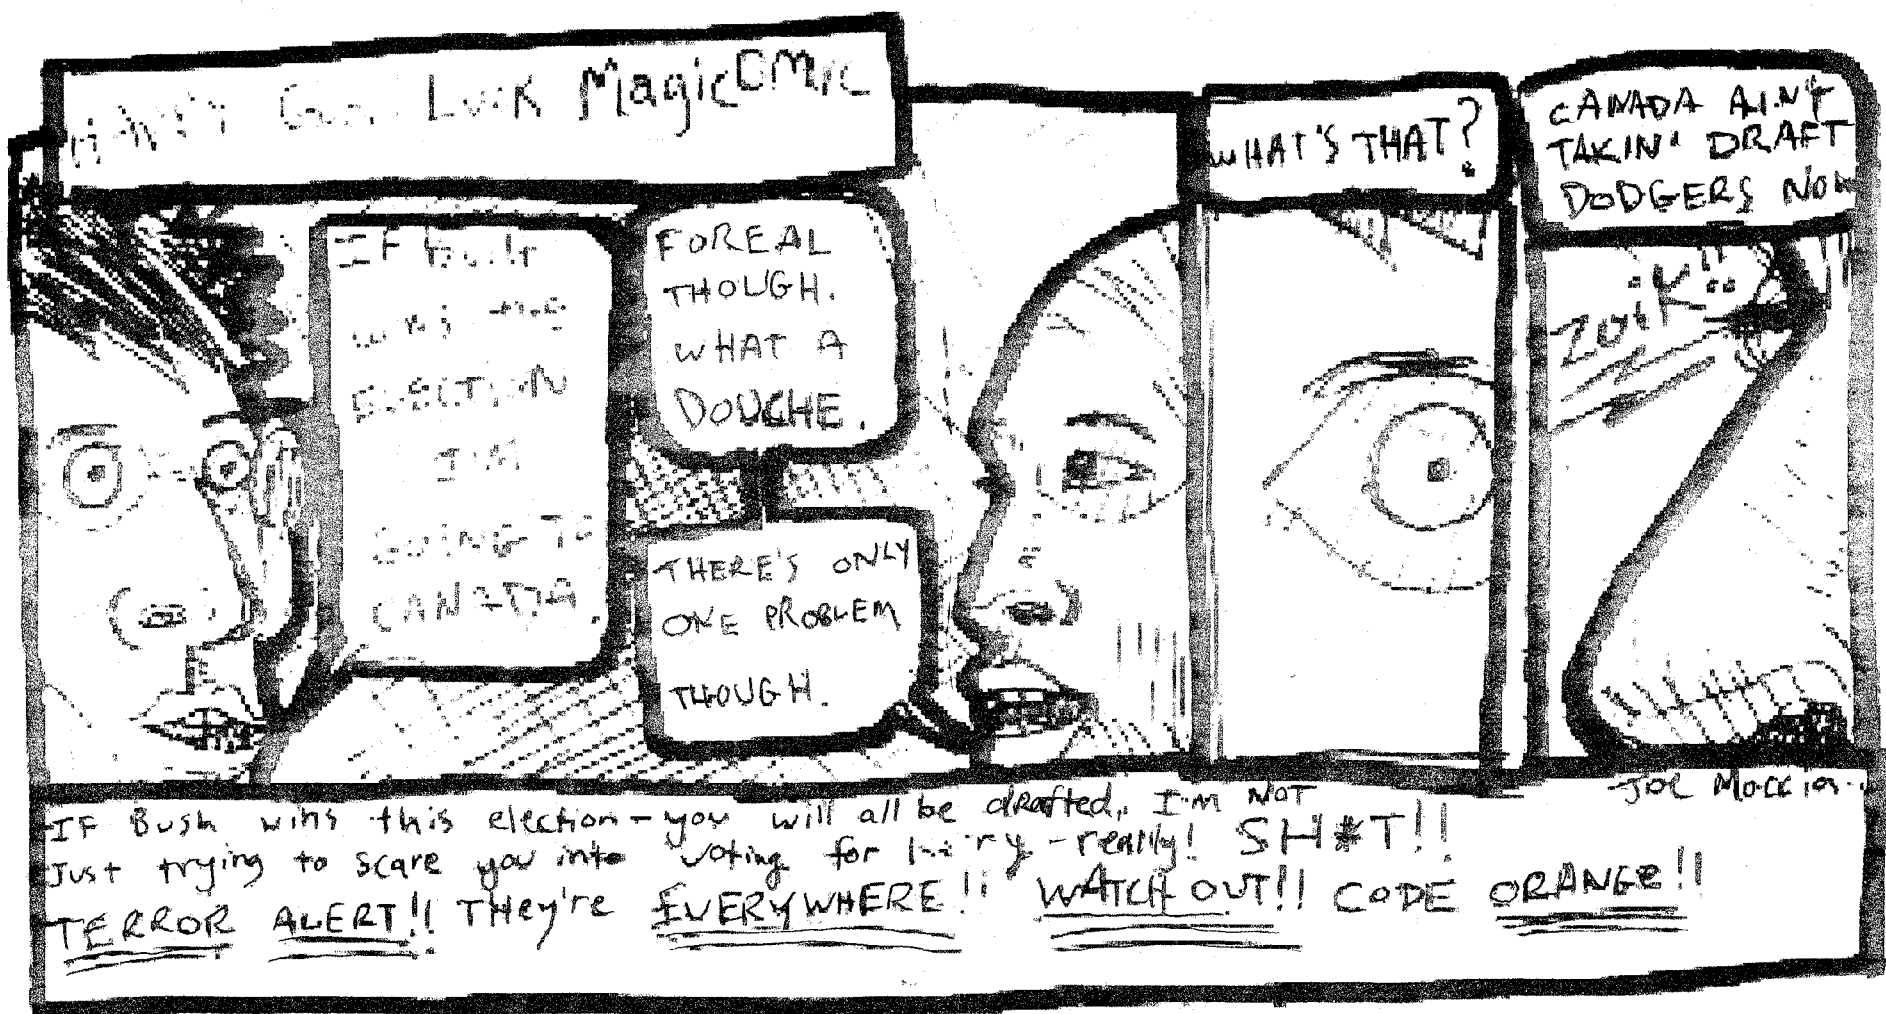 HAPPY Good Luck Magic COMIC
IF Bush
wins the
ELECTION
I'M
GOING TO
CANADA.
FOREAL
THOUGH.
WHAT A
DOUCHE.
THERE'S ONLY
ONE PROBLEM
THOUGH.
WHAT'S THAT?
CANADA AIN'T
TAKIN' DRAFT
DODGERS NOW
ZOiK!!
Joe
IF Bush wins this election - you will all be drafted, I'm NOT
Just trying to scare you into voting for - really! SH#T!!
TERROR ALERT!! THEy're EVERYWHERE!! WATCH OUT!! CODE ORANGE!!